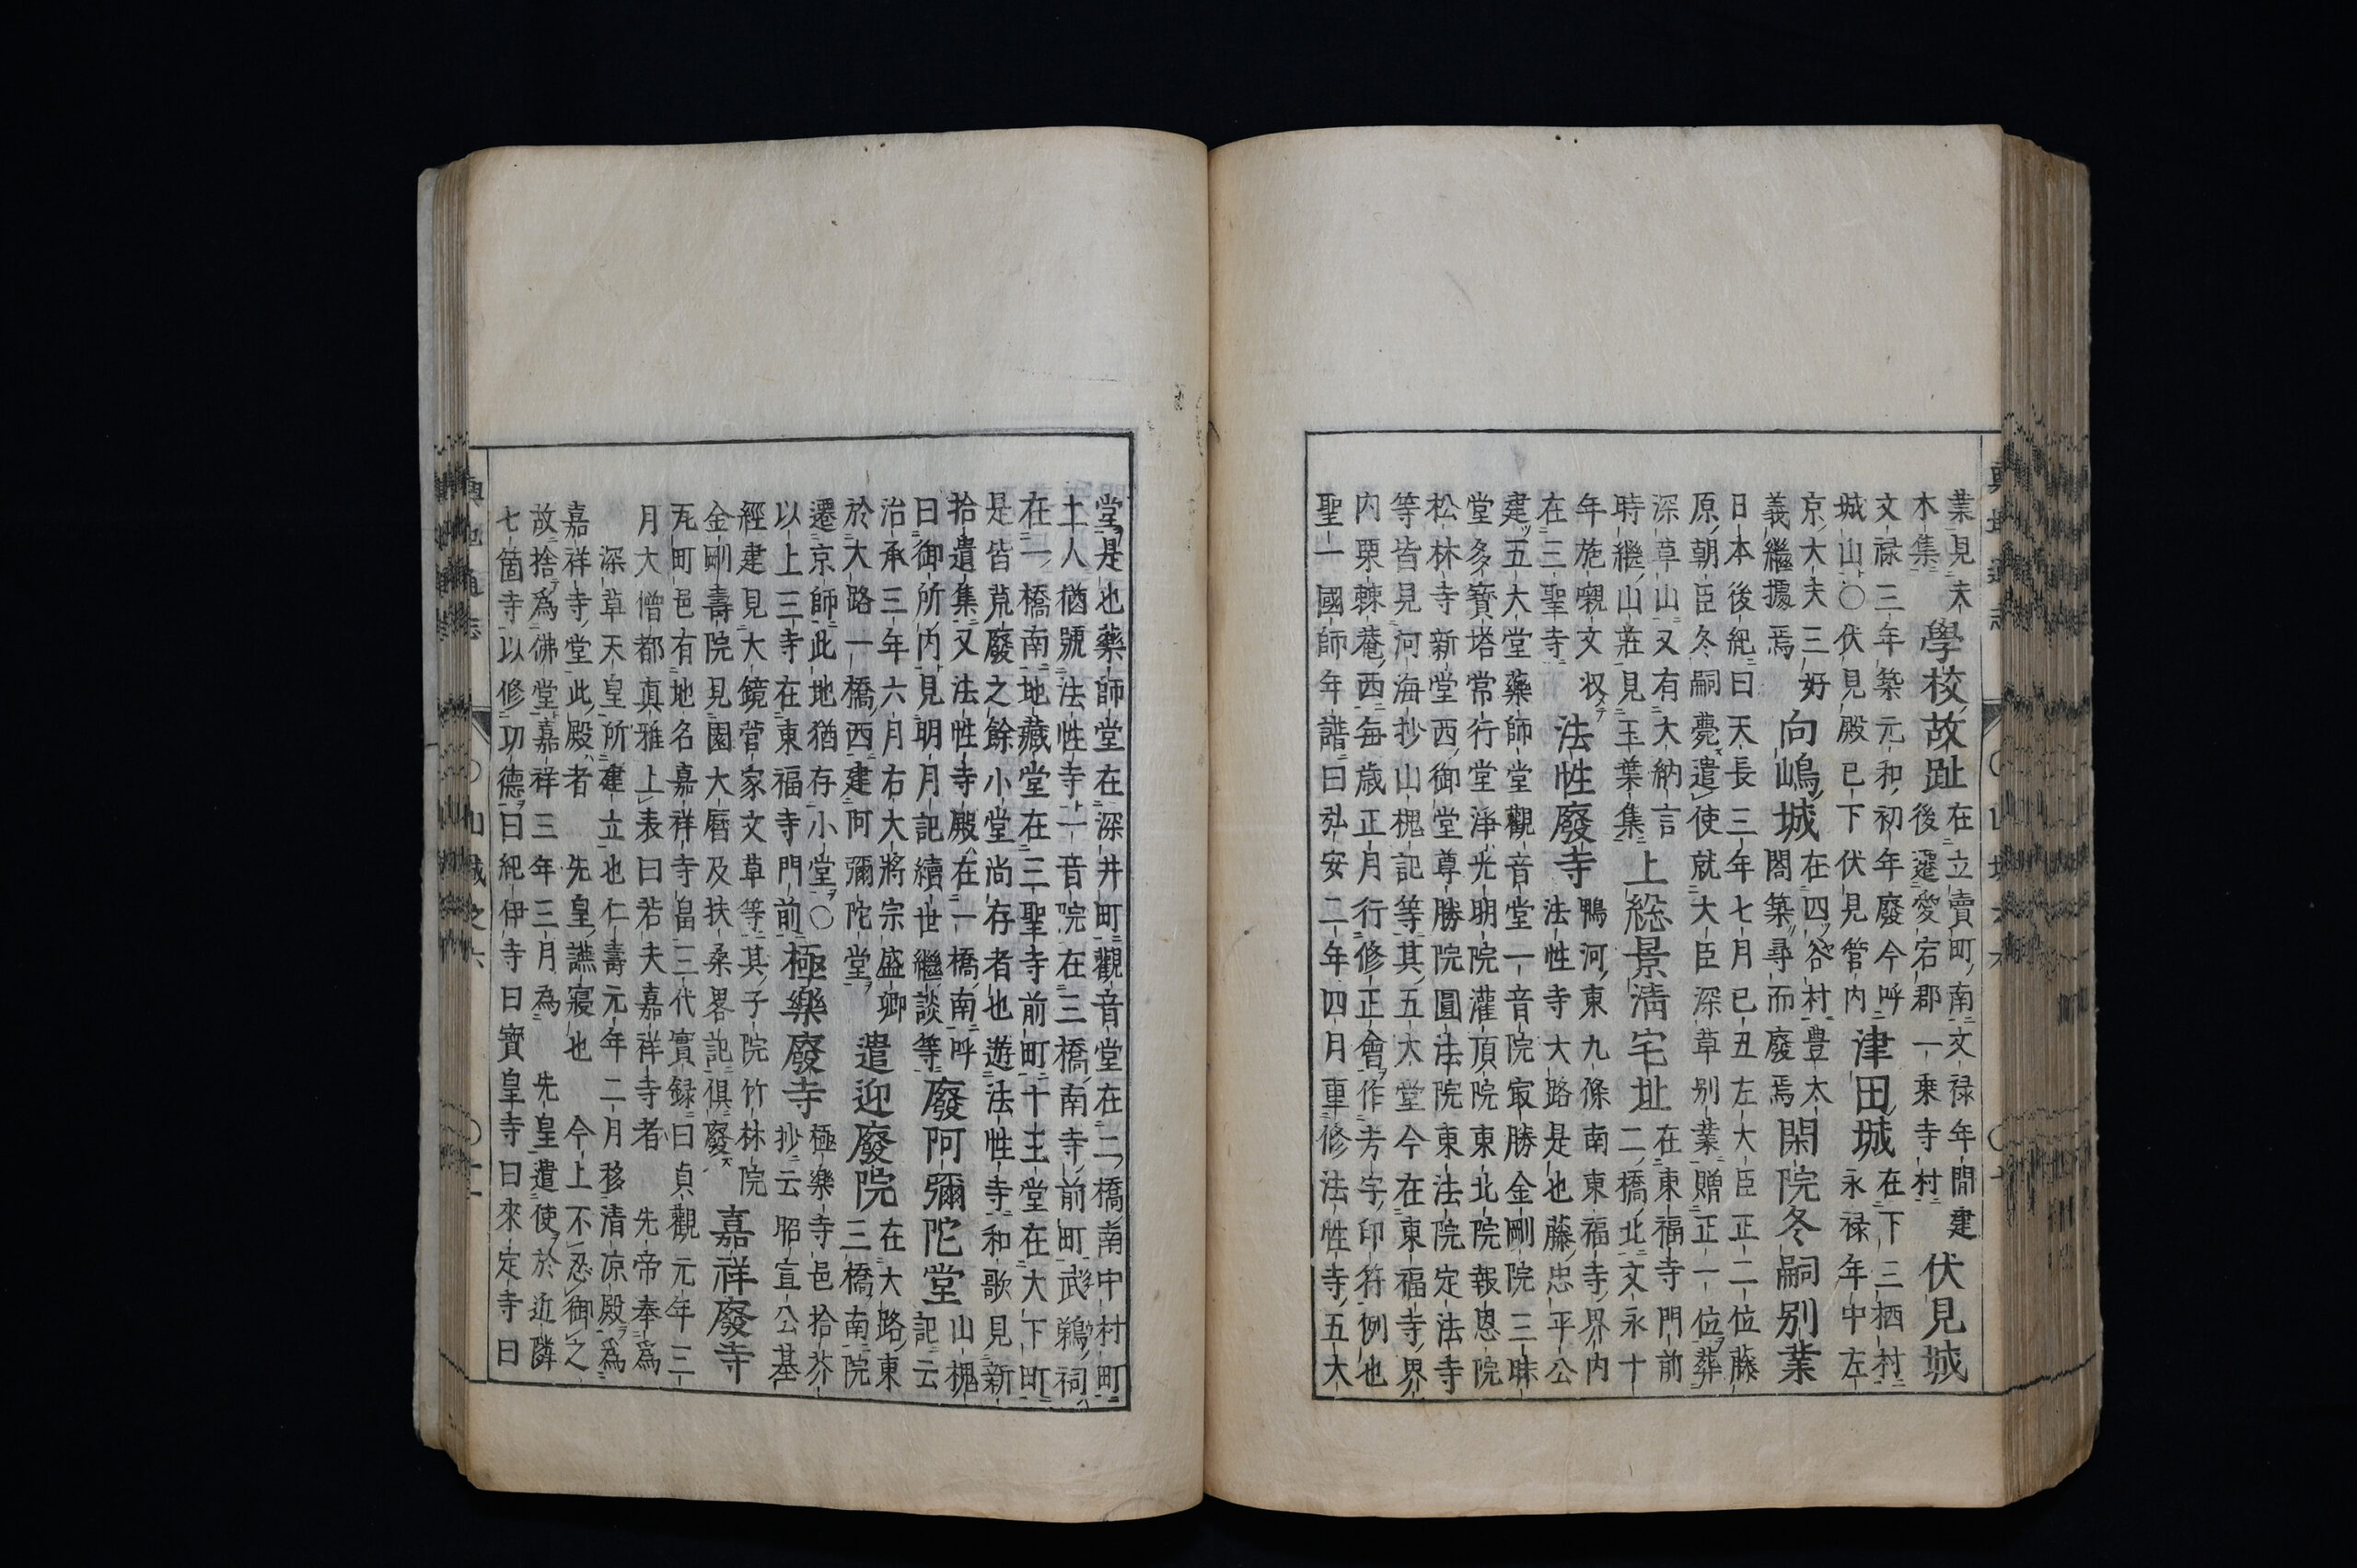 業見夫
木集
學校故趾
在立賣町南文禄年間建
後遷愛宕郡一乗寺村
伏見城
文禄三年築元和初年廢今呼
城山〇伏見殿已下伏見管内
津田城
在下三栖村
永禄年中左
京大夫三好
義繼據焉
向嶋城
在四谷村豊太
閤築尋而廢焉
閑院冬嗣别業
日本後紀曰天長三年七月已丑左大臣正二位藤
原朝臣冬嗣薨遣使就大臣深草别業贈正一位葬
深草山又有大納言
時繼山莊見玉葉集
上総景清宅址
在東福寺門前
二橋北文永十
年葹嚫文収
在三聖寺
法性廢寺
鴨河東九條南東福寺界内
法性寺大路是也藤忠平公
建五大堂藥師堂觀音堂一音院㝡勝金剛院三昧
堂多寳塔常行堂淨光明院灌頂院東北院報恩院
松林寺新堂西御堂尊勝院圓法院東法院定法寺
等皆見河海抄山槐記等其五大堂今在東福寺界
内栗棘菴西每歳正月行修正會作芳字印符例也
聖一國師年譜曰弘安二年四月重修法性寺五大
堂是也藥師堂在深井町觀音堂在二橋南中村町
土人猶號法性寺一音院在三橋南寺前町武鵜祠
在一橋南地藏堂在三聖寺前町十王堂在大下町
是皆荒廢之餘小堂尚存者也遊法性寺和歌見新
拾遺集又法性寺殿在一橋南呼
曰御所内見明月記續世繼談等
廢阿彌陀堂
山槐
記云
治承三年六月右大將宗盛卿
於大路一橋西建阿彌陀堂
遣迎廢院
在大路東
三橋南院
遷京師此地猶存小堂〇
以上三寺在東福寺門前
極樂廢寺
極樂寺邑拾芥
抄云昭宣公基
經建見大鏡菅家文草等其子院竹林院
金剛壽院見園大曆及扶桑畧記俱廢
嘉祥廢寺
瓦町邑有地名嘉祥寺畠三代實録曰貞觀元年三
月大僧都真雅上表曰若夫嘉祥寺者 先帝奉為
深草天皇所建立也仁壽元年二月移清凉殿為
嘉祥寺堂此殿者 先皇讌寢也 今上不忍御之
故捨為佛堂嘉祥三年三月為 先皇遣使於近隣
七箇寺以修功德曰紀伊寺曰寳皇寺曰來定寺曰
輿地通志
〇山城之六